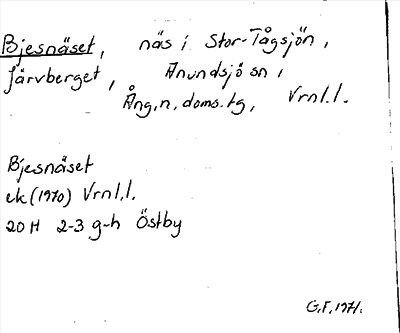 Bjesnäset, näs i Stor-Tågsjön,
Järvberget, Anundsjö sn,
Ång.n.doms.tg, Vrnl.l.
Bjesnäset
ek (1970) Vrnl.l.
20 H 2-3 g-h Östby
G.F. 1971.